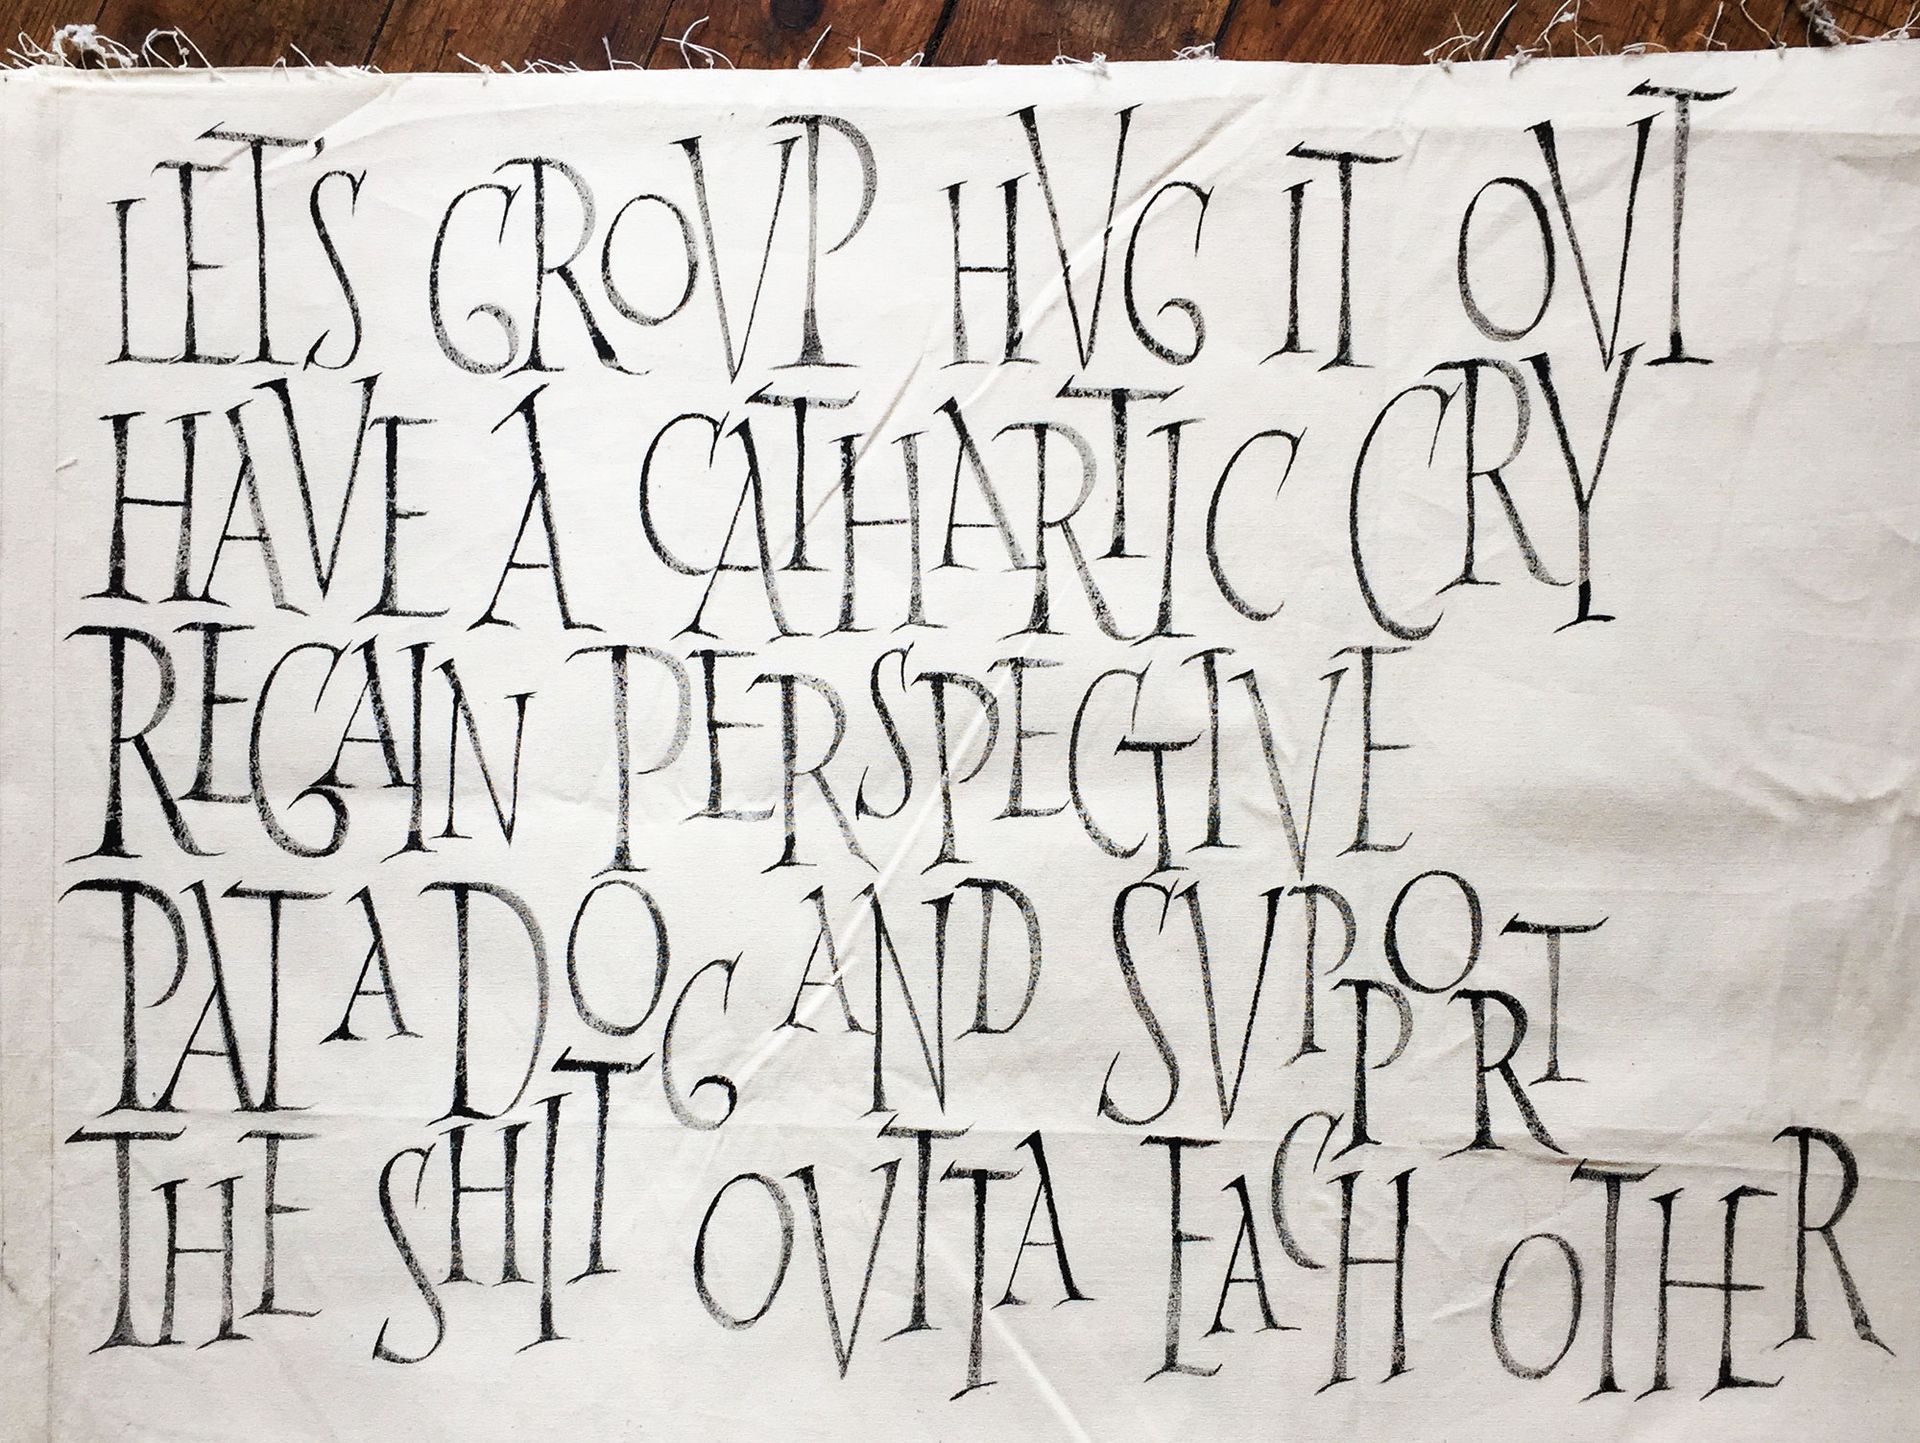 LET'S GROVP HVG IT OVT
HAVE A CATHARTIC CRY
REGAIN PERSPECTIVE
PAT A DOG AND SVPPORT
THE SHIT OVTTA EACH OTHER